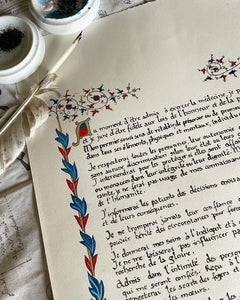 Au moment d'être admis à exercer la médecine, je p
et je jure d'être fidèle aux lois de l'honneur et de la
Mon premier souci sera de rétablir de préserver ou de promou
dans tous ses éléments, physiques et mentaux, individu
Je respecterai toutes les personnes, leur autonomie
sans aucune discrimination selon leur état ou leurs
interviendrai pour les protéger si elles sont
ou menacées dans leur intégrité ou leur dignité.
contrainte, je ne ferai pas usage de mes connaissances
de l'humanité.
J'informerai les patients des décisions envis
et de leurs conséquences.
Je ne tromperai jamais leur confiance
pouvoir hérité des circonstances pour
Je donnerai mes soins à l'indigent et à
Je ne me laisserai pas influencer
recherche de la gloire.
Admis dans l'intimité des person
qui me seront confiés. Reçu à
respecterai les secrets des